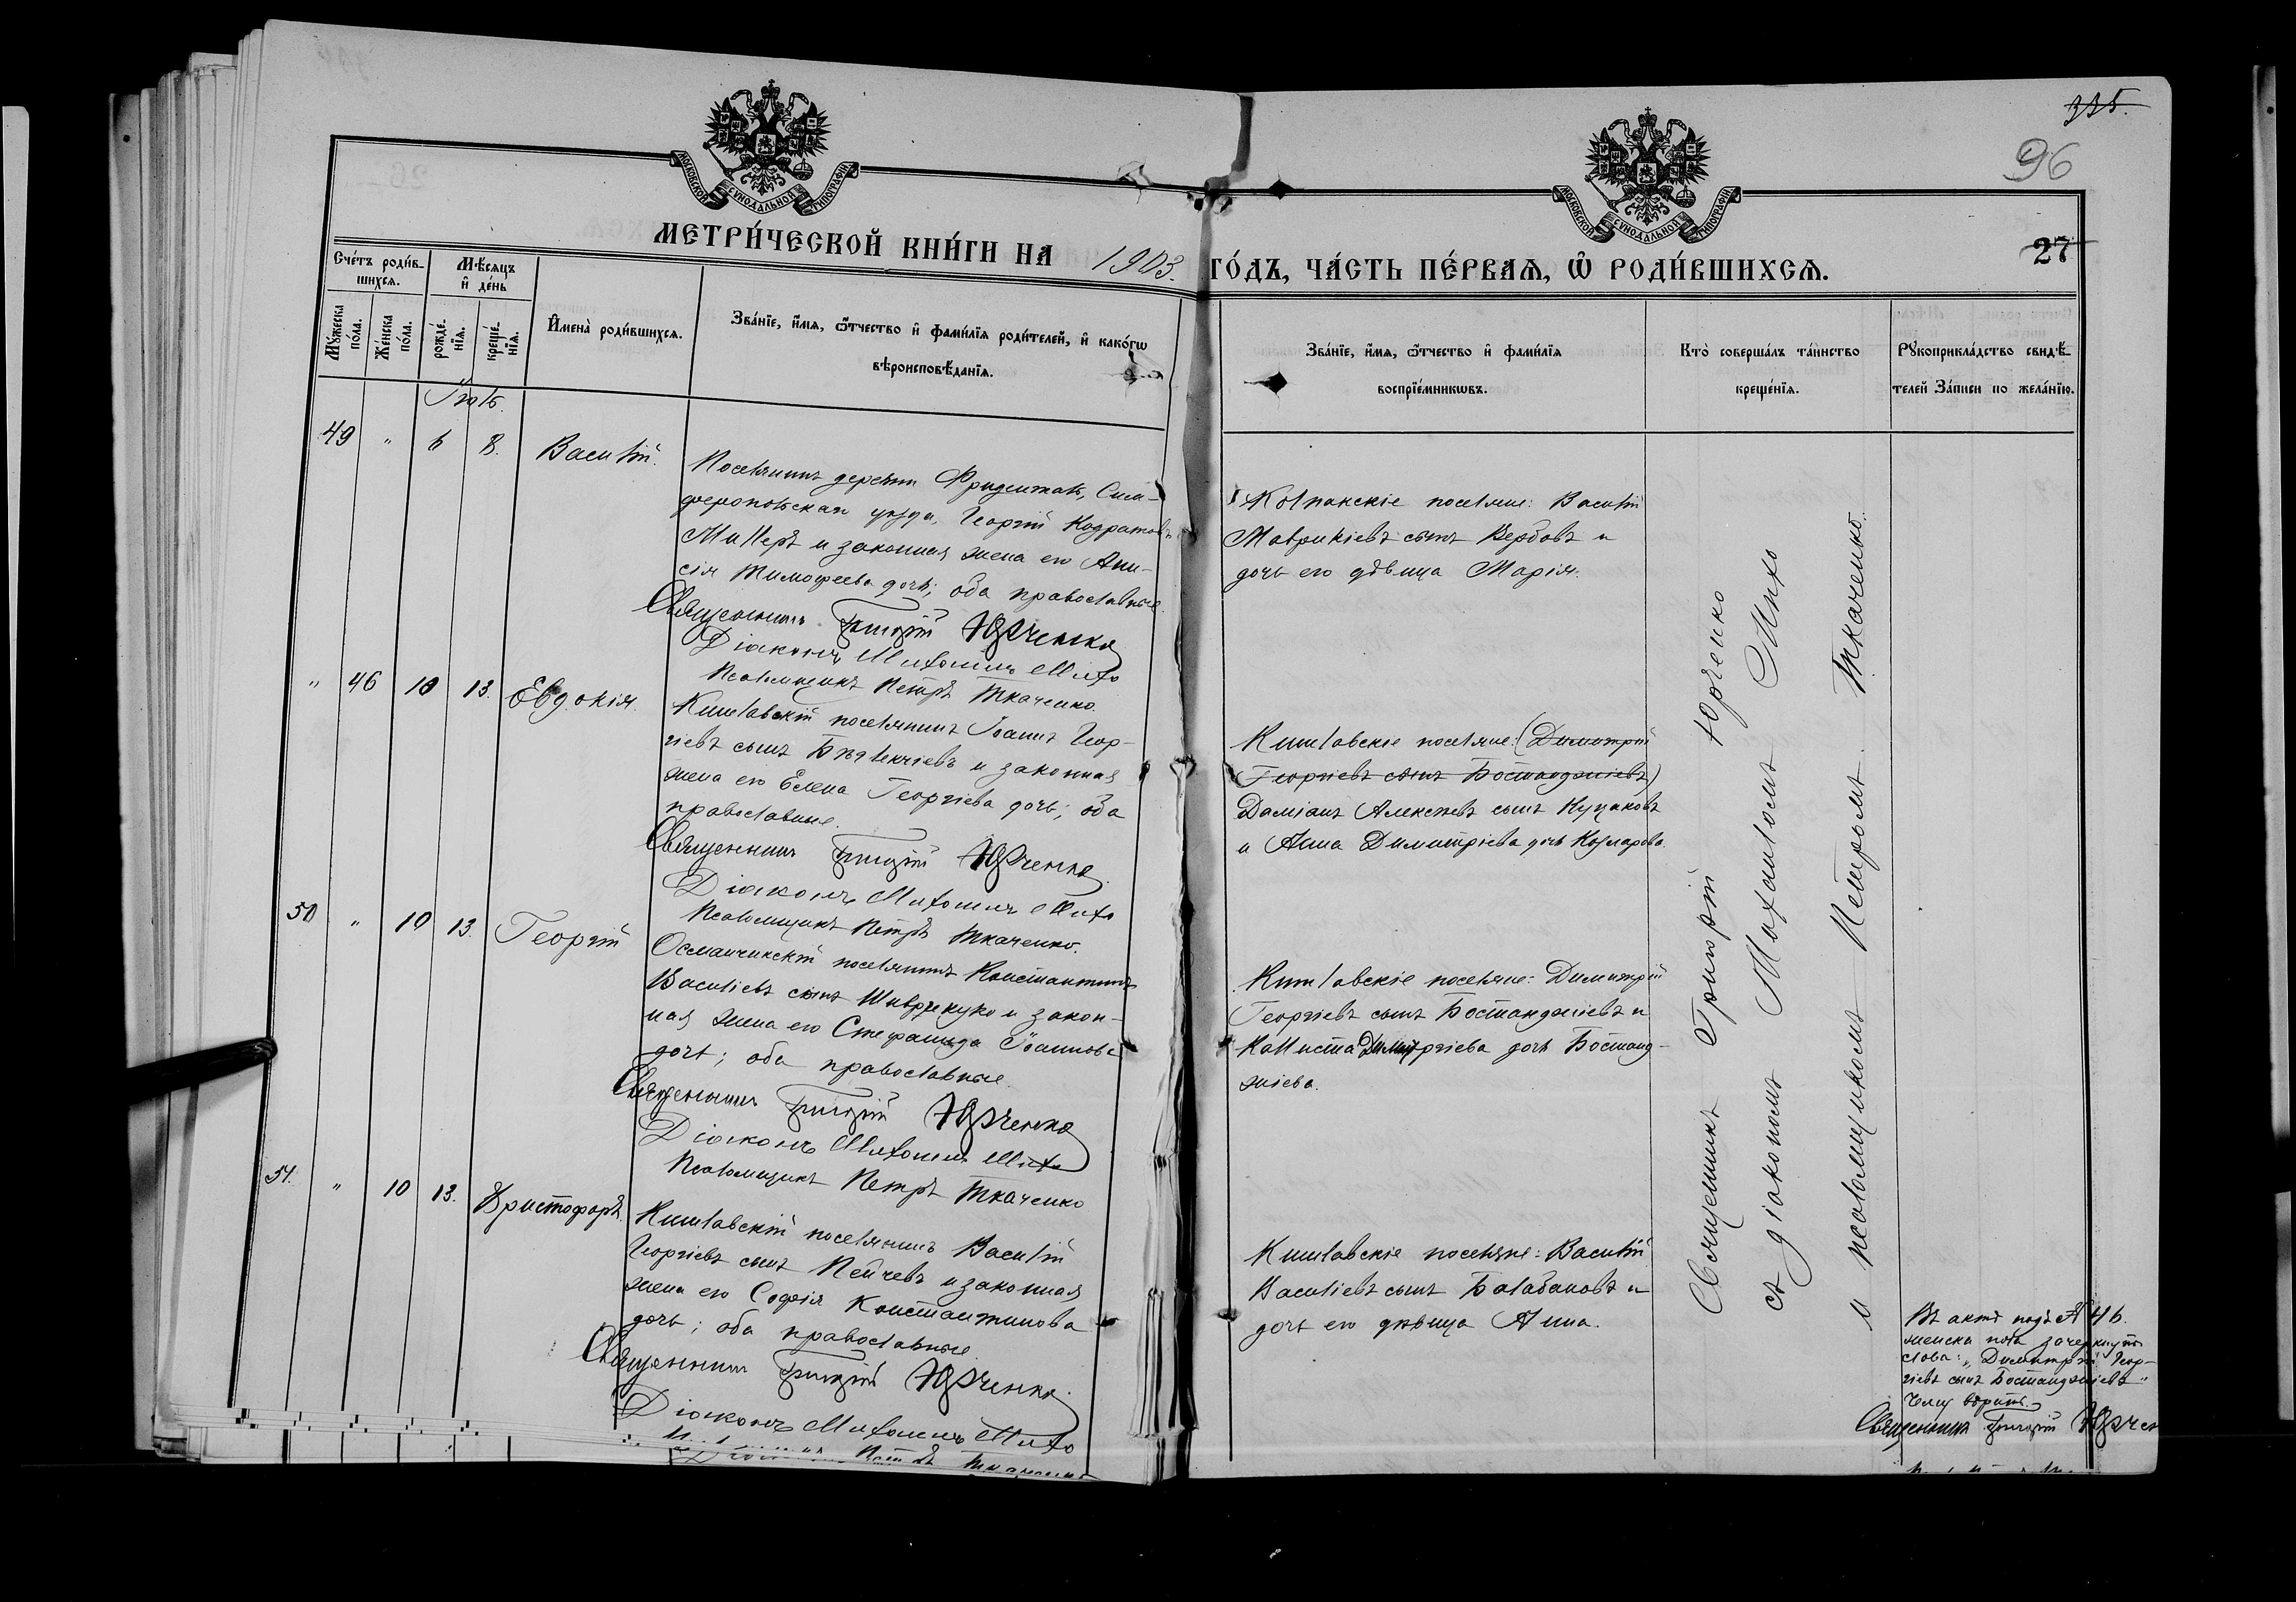 335.
96
27
МОСКОВСКОЙ СѴНОДАЛЬНОЙ ТИПОГРАФІИ.
МОСКОВСКОЙ СѴНОДАЛЬНОЙ ТИПОГРАФІИ.
МЕТРИ́ЧЕСКОЙ КНИ́ГИ НА 1903. ГО́ДЪ, ЧА́СТЬ ПЕ́РВАѦ, Ѡ҆ РОДИ́ВШИХСѦ.
Сче́тъ роди́в-
шихсѧ.
Мꙋ́жеска по́ла.
Же́нска по́ла.
Мѣ́сѧцъ и҆ де́нь
рожде́-нїѧ.
креще́-нїѧ.
И҆мена̀ роди́вшихсѧ.
Зва́нїе, и҆́мѧ, ѻ҆́тчество и҆ фами́лїѧ роди́телей, и҆ како́гѡ
вѣроисповѣ́данїѧ.
Зва́нїе, и҆́мѧ, ѻ҆́тчество и҆ фами́лїѧ
воспрїе́мникѡвъ.
Кто̀ соверша́лъ та́инство
креще́нїѧ.
Рꙋкоприкла́дство свидѣ́-
телей за́писи по жела́нїю.
Іюль.
49 " 6 8. Василій.
Поселянинъ деревни Фриденталь, Сим-
феропольскаго уѣзда, Георгій Кодратовъ
Миллеръ и законная жена его Ани-
сія Тимофеева дочь; оба православные.
Священникъ Григорій Юрченко
Діаконъ Михаилъ Михо
Псаломщикъ Петръ Ткаченко.
Колпакскіе поселяне: Василій
Маврикіевъ сынъ Вербовъ и
дочь его дѣвица Марія.
" 46 10 13. Евдокія.
Кишлавскій поселянинъ Іоаннъ Геор-
гіевъ сынъ и законная
жена его Елена Георгіева дочь; оба
православные.
Священникъ Григорій Юрченко.
Діаконъ Михаилъ Михо
Псаломщикъ Петръ Ткаченко.
Кишлавскіе поселяне: (Димитрій
Георгіевъ сынъ Бостанджіевъ)
Даміанъ Алексѣевъ сынъ Куцаковъ
и Анна Димитріева дочь
50 " 10 13. Георгій
Османчикскій поселянинъ Константинъ
Василіевъ сынъ и закон-
ная жена его Стефанида Іоаннова
дочь; оба православные.
Священникъ Григорій Юрченко
Діаконъ Михаилъ Михо
Псаломщикъ Петръ Ткаченко
Кишлавскіе поселяне: Димитрій
Георгіевъ сынъ Бостанджіевъ и
Каллиста Димитріева дочь Бостанд-
жіева.
51. " 10 13. Христофоръ.
Кишлавскій поселянинъ Василій
Георгіевъ сынъ Пейчевъ и законная
жена его Софія Константинова
дочь; оба православные.
Священникъ Григорій Юрченко.
Діаконъ Михаилъ Михо
Петръ Ткаченко
Кишлавскіе поселяне: Василій
Василіевъ сынъ Балабановъ и
дочь его дѣвица Анна.
Священникъ Григорій Юрченко
съ діакономъ Михаиломъ Михо
и псаломщикомъ Петромъ Ткаченко.
Въ актѣ подъ № 46.
женска пола зачеркнуто
слова: „Димитрій Геор-
гіевъ сынъ Бостанджіевъ"
Чему вѣрить.
Священникъ Григорій Юрчен